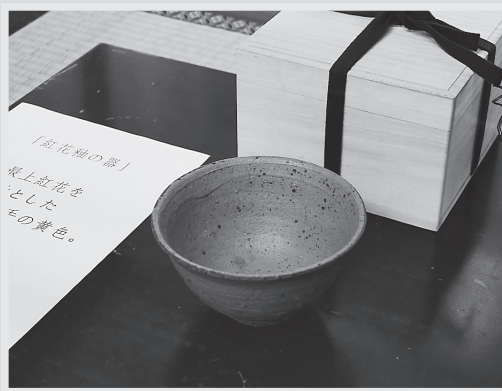 「紅花釉の器」
最上紅花を
とした
もの黄色。